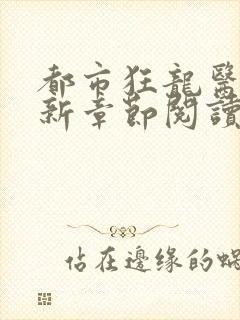 都市狂龍醫
新章節閱讀
佔在邊缘的蝸